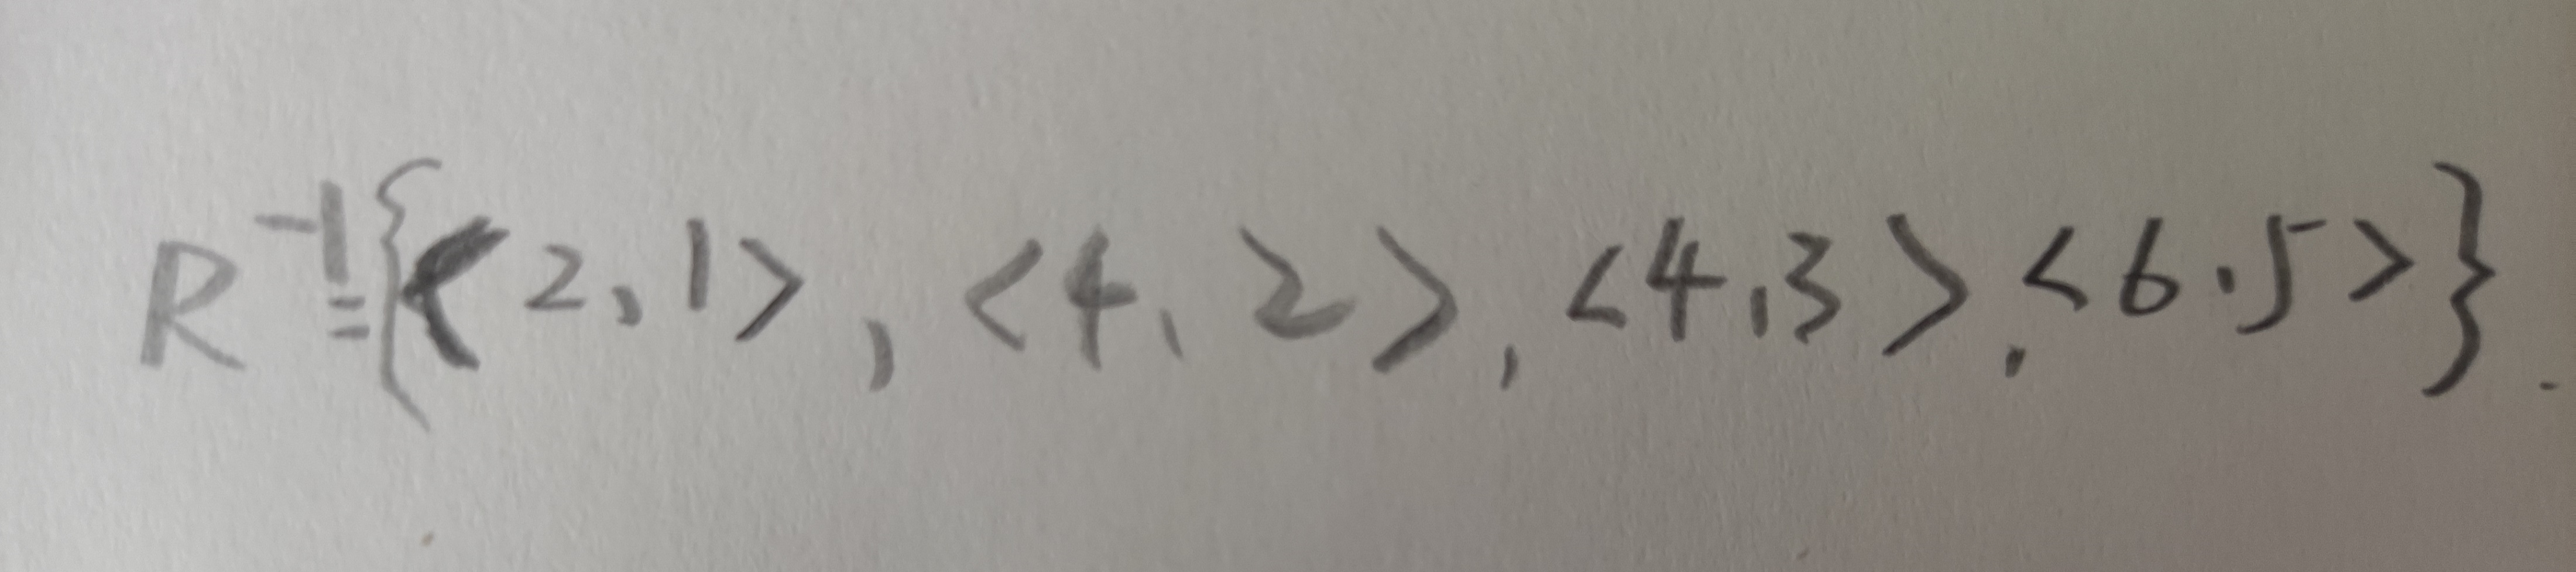 R⁻¹={<2,1>,<4,2>,<4,3>,<6.5>}.